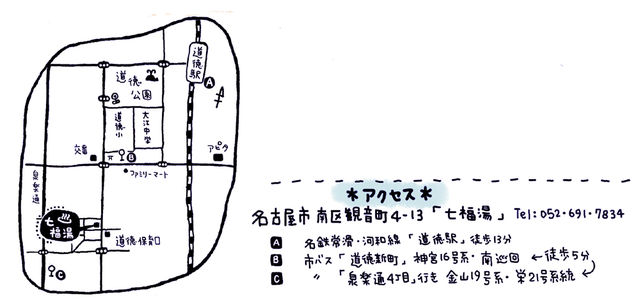 道徳駅
A
道徳公園
道徳小
大江中学
交番
B
アピタ
ファミリーマート
泉楽通
七福湯
道徳保育園
C
*アクセス*
名古屋市南区観音町4-13「七福湯」 Tel:052・691・7834
A 名鉄常滑・河和線「道徳駅」徒歩13分
B 市バス「道徳新町」神宮16号系・南巡回 ←徒歩5分
C 〃「泉楽通4丁目」行き 金山19号系・栄21号系統